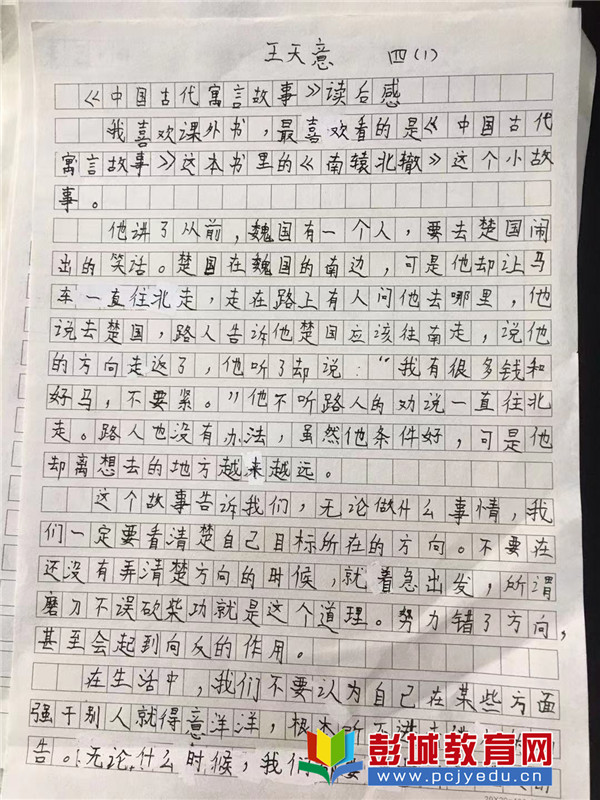 王天意 四(1)
《中国古代寓言故事》读后感
我喜欢课外书，最喜欢看的是《中国古代
寓言故事》这本书里的《南辕北撤》这个小故
事。
他讲了从前，魏国有一个人，要去楚国闹
出的笑话。楚国在魏国的南边，可是他却让马
车一直往北走，走在路上有人问他去哪里，他
说去楚国，路人告诉他楚国应该往南走，说他
的方向走反了，他听了却说：“我有很多钱和
好马，不要紧。”他不听路人的劝说一直往北
走。路人也没有办法，虽然他条件好，可是他
却离想去的地方越来越远。
这个故事告诉我们，无论做什么事情，我
们一定要看清楚自己目标所在的方向。不要在
还没有弄清楚方向的时候，就着急出发，所谓
磨刀不误砍柴功就是这个道理。努力错了方向，
甚至会起到向反的作用。
在生活中，我们不要认为自己在某些方面
强于别人就得意洋洋，根本听不进去
告。无论什么时候，我们
彭城教育网
www.pcjyedu.cn